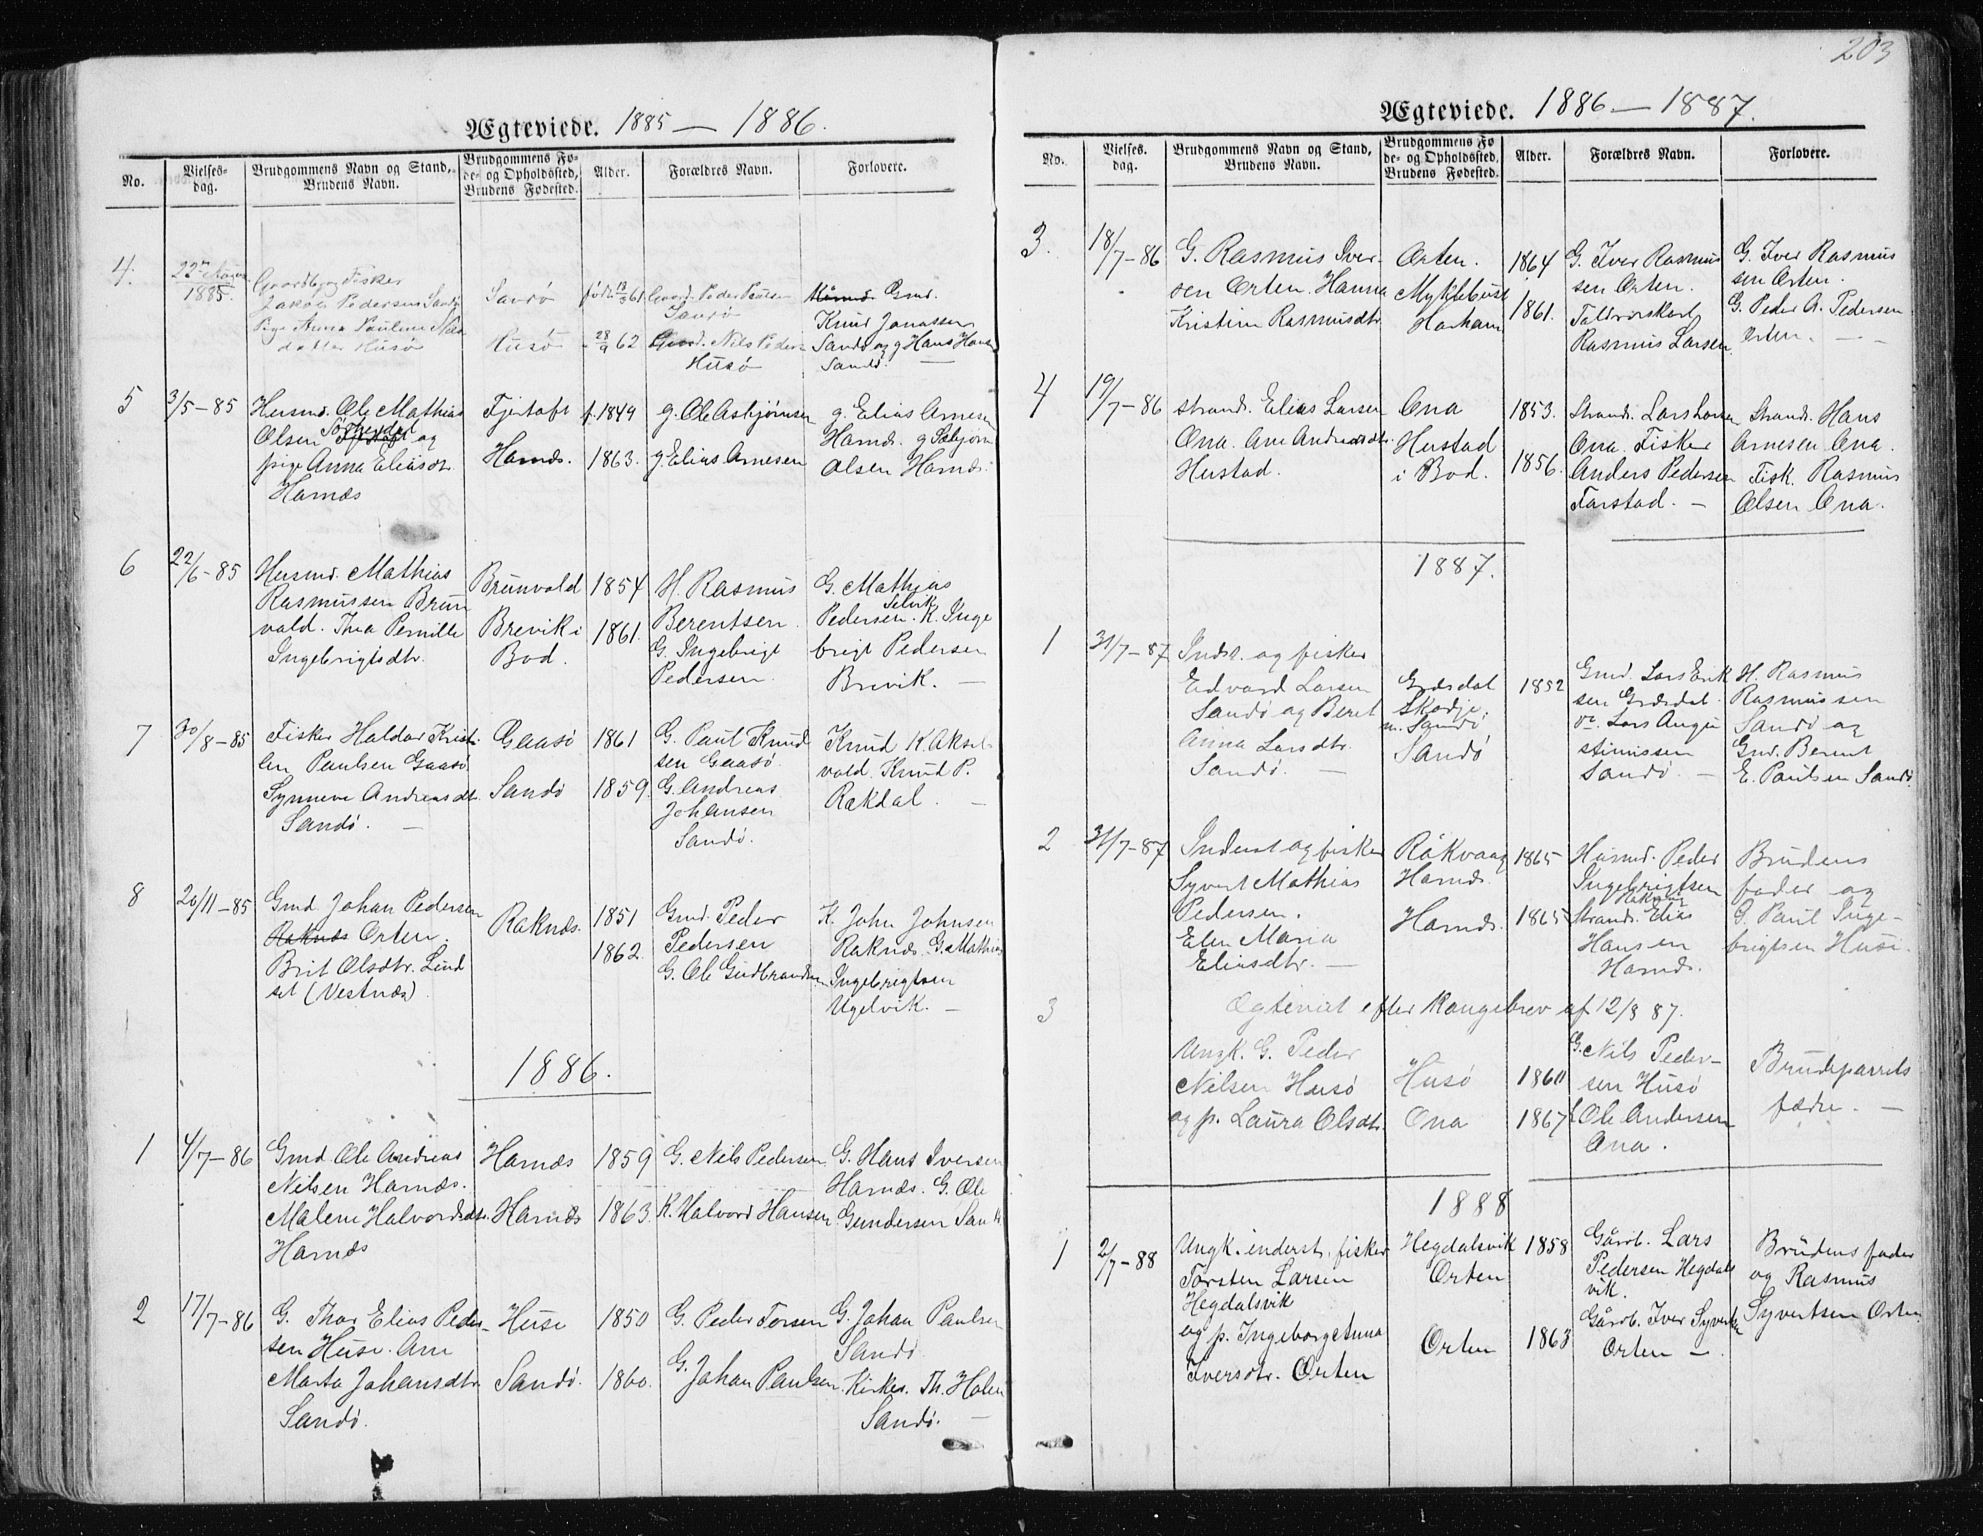 203
Ægteviede. 1885 — 1886.
No.
Vielses-
dag.
Brudgommens Navn og Stand,
Brudens Navn.
Brudgommens Fø-
de- og Opholdssted,
Brudens Fødested.
Alder.
Forældres Navn.
Forlovere.
4.
22de
1885.
Gaardbr og Fisker
Jakob Pedersen Sandø
Pige Anna Pauline Nils
datter Husø
Sandø
Husø
født 61
28/9 62
Gaard. Peder Paulsen
Sandø
Gaard. Nils Peders
Husø
Gmd.
Knud Jonassen
Sandø og g Hans Hans
Sandø. —
5
3/5-85
Husmd. Ole Mathias
Olsen og
pige Anna Eliasdtr
Harnæs
Fjørtoft
Harnæs.
f. 1849
1863.
g. Ole Asbjørnsen
g Elias Arnesen
g. Elias Arnesen
Harnæs. g Asbjørn
Olsen Harnæs.
6
22/6-85
Husmd. Mathias
Rasmussen Brun
vold. Thea Pernille
Ingebrigtsdtr.
Brunvold
Brevik i
Bod.
1854
1861.
H. Rasmus
Berentsen.
G. Ingebrigt
Pedersen.
G. Mathias
Pedersen Selvik. K. Inge
brigt Pedersen
Brevik. —
7
30/8-85
Fisker Haldor Kristi-
an Paulsen Gaasø
Synneve Andreasdt.
Sandø. —
Gaasø
Sandø
1861
1859.
G. Paul Knud
sen Gaasø.
G. Andreas
Johansen
Sandø.
Knud K. Aksel-
vold. Knud P.
Rakdal. —
8
20/11-85
Gmd. Johan Pedersen
Raknæs Orten.
Brit Olsdtr. Lind
set (Vestnæs).
Raknæs.
1851
1862.
Gmd. Peder
Pedersen
G. Ole Gudbrandsen
K. John Johnsen
Raknæs. G. Mathias
Ingebrigtsen
Ugelvik. —
1886.
1
4/7-86
Gmd. Ole Andreas
Nilsen Harnæs.
Malene Halvordsdtr.
Harnæs
Harnæs
Harnæs
1859
1863.
G. Nils Pedersen
K. Halvord Hansen
G. Hans Iversen
Harnæs. G. Ole
Gundersen
2
17/7-86
G. Thor Elias Peder-
sen Huse. Ane
Marta Johansdtr
Sandø.
Huse
Sandø.
1850
1860.
G. Peder Torsen
G. Johan Paulsen.
G. Johan Paulsen
Sandø.
Kirkes. Th. Holen
Sandø. —
Ægteviede. 1886 — 1887.
No.
Vielses-
dag.
Brudgommens Navn og Stand,
Brudens Navn.
Brudgommens Fø
de- og Opholdssted,
Brudens Fødested.
Alder.
Forældres Navn.
Forlovere.
3.
18/7-86
G. Rasmus Iver-
sen Orten. Hanna
Kristine Rasmusdtr.
Orten.
Myklebust
Harham
1864
1861.
G. Iver Rasmus
sen Orten.
Rasmus Larsen.
G. Iver Rasmus
sen Orten.
G. Peder A. Pedersen
Orten. —
4
19/7-86
Strand. Elias Larsen
Ona. Ane Andreasdtr.
Hustad.
Ona
Hustad
i Bod.
1853.
1856.
Strand. Lars Larsen
Ona. Fisker
Anders Pedersen
Farstad. —
Strand. Hans
Arnesen Ona.
Fisk. Rasmus
Olsen Ona.
1887.
1
31/7-87
Inds. og fisker
Edvard Larsen
Sandø og Beret
Anna Larsdtr.
Sandø. —
Græsdal
Skodje.
Sandø
Sandø
1852
Gmd. Lars Erik
sen Græsdal.
Lars Augu
stinussen
Sandø. —
H. Rasmus
Rasmussen
Sandø og
Gmd. Berent
E. Paulsen Sandø.
2
31/7-87
Inderst og fisker
Syvert Mathias
Pedersen.
Elen Maria
Eliasdtr. —
Røkvaag
Harnæs.
Harnæs.
1865
1865
Husmd. Peder
Ingebrigtsen
Strand. Elias
Hansen
Harnæs.
Brudens
fader og
G. Paul Inge-
brigtsen Huse.
3
Ægteviet efter Kongebrev af 12/8 87.
Ungk. G. Peder
Nilsen Husø
og p. Laura Olsdtr.
Husø
Ona
1860
1867
G. Nils Peder-
sen Husø
Ole Andersen
Ona.
Brudeparrets
fædre. —
1888
1
2/7-88
Ungk. inderst, fisker
Torsten Larsen
Hegdalsvik
og p. Ingeborg Anna
Iversdtr. Orten
Hegdalsvik
Orten
Orten
1858
1863
Gårdb. Lars
Pedersen Hegdals
vik.
Gårdb. Iver Syvertsen
Orten —.
Brudens fader
og Rasmus
Syvertsen Orten.